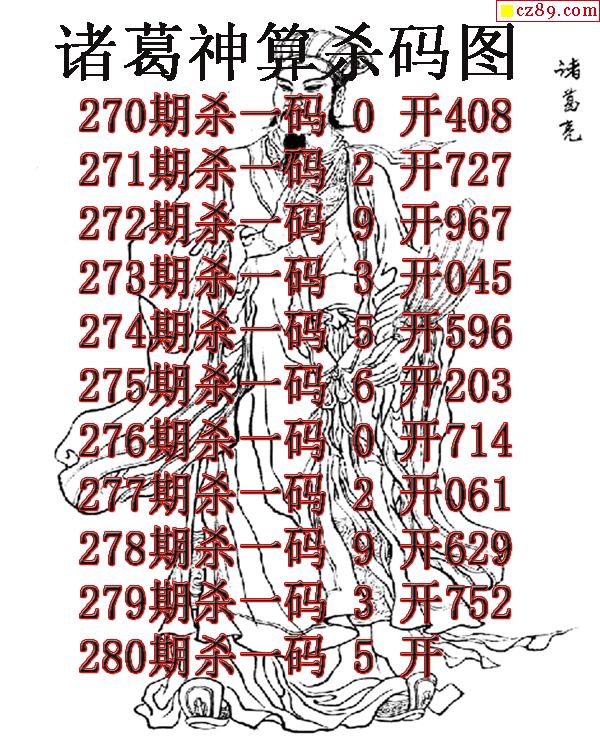 cz89.com
诸葛神算杀码图
诸葛亮
270期杀一码 0 开408
271期杀一码 2 开727
272期杀一码 9 开967
273期杀一码 3 开045
274期杀一码 5 开596
275期杀一码 6 开203
276期杀一码 0 开714
277期杀一码 2 开061
278期杀一码 9 开629
279期杀一码 3 开752
280期杀一码 5 开